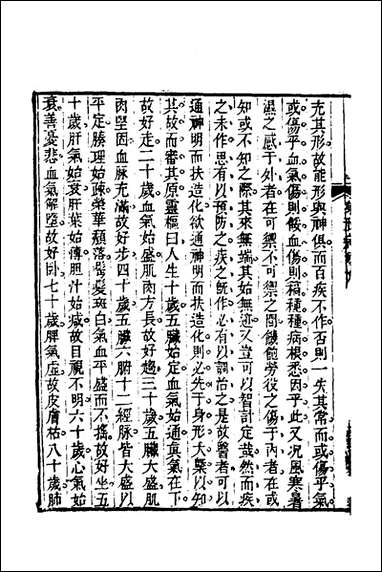 充其形故能形與神俱而百疾不作否則一失其常而或傷乎氣
或傷乎血氣傷則餒血傷則稿種種病根悉因乎此又况風寒暑
濕之感于外者在可禦不可禦之間饑飽勞役之傷于內者在或
知或不知之際其來無端其始無迹又豈可以智計定哉然而疾
之未作思有以預防之疾之既作必有以調治之是故醫者可以
通神明而扶造化欲通神明而扶造化則必先于身形大槩以知
其故而審其原靈樞曰人生十歲五臟始定血氣始通真氣在下
故好走二十歲血氣始盛肌肉方長故好趨三十歲五臟大盛肌
肉堅固血脉充滿故好步四十歲五臟六腑十二經脉皆大盛以
平定腠理始疎榮華頹落鬢髮斑白氣血平盛而不搖故好坐五
十歲肝氣始衰肝葉始薄胆汁始滅故目視不明六十歲心氣始
衰善憂悲血氣解墮故好卧七十歲脾氣虛故皮膚枯八十歲肺